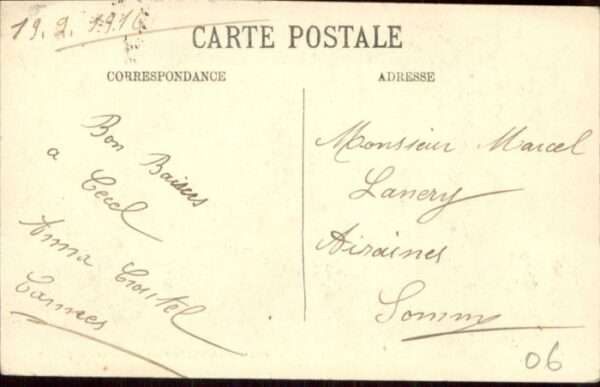 19.2.1916
CARTE POSTALE
CORRESPONDANCE
ADRESSE
Bon Baisers
a Cecel
Anna Croutel
Cannes
Monsieur Marcel
Lanery
Airaines
Somme
06